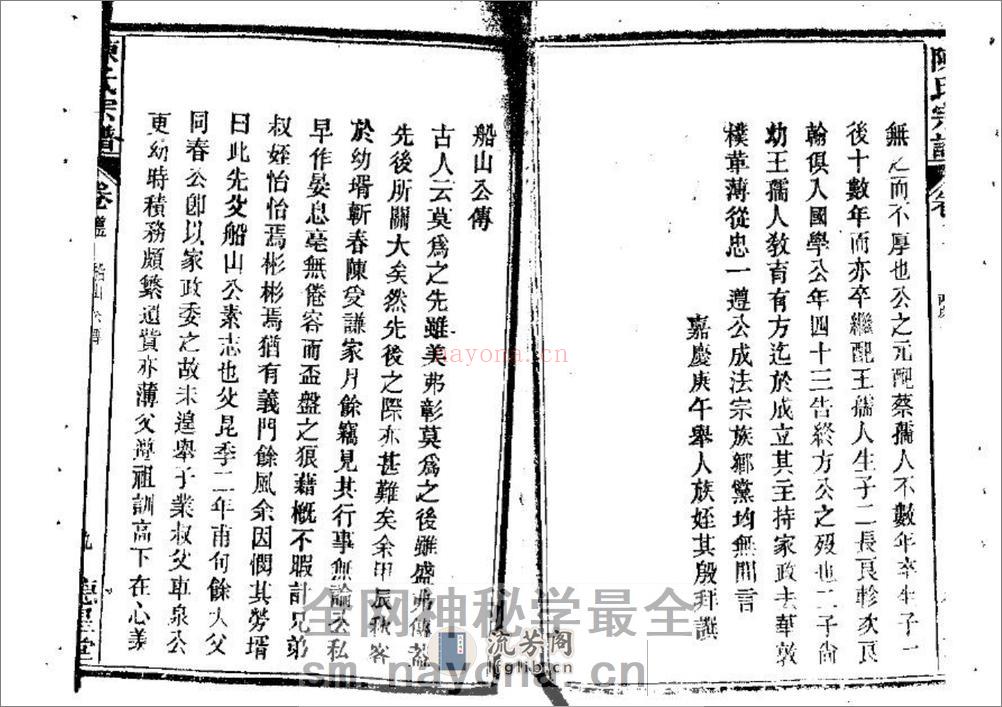 陳氏宗譜
卷
無之而不厚也公之元配蔡孺人不數年卒生子一
後十數年而亦卒繼配王孺人生子二長良軫次良
翰俱入國學公年四十三告終方公之歿也二子尚
幼王孺人教育有方迄於成立其主持家政去華敦
樸革薄從忠一遵公成法宗族鄉黨均無間言
嘉慶庚午舉人族姪其殷拜譔
船山公傳
古人云莫爲之先雖美弗彰莫爲之後雖盛弗傳蓋
先後所關大矣然先後之際亦甚難矣余甲辰秋客
於幼壻蘄春陳受謙家月餘竊見其行事無論公私
早作晏息毫無倦容而盃盤之狼藉概不暇計兄弟
叔姪怡怡焉彬彬焉猶有義門餘風余因憫其勞壻
曰此先父船山公素志也父昆季二年甫旬餘大父
同春公卽以家政委之故未遑舉子業叔父車泉公
更幼時積務頗繁遺貲亦薄父遵祖訓高下在心美
陳氏宗譜
卷
船山公傳
九
全网神秘学最全
nayona.cn
流芳阁
lfglib.cn
sm.nayona.cn